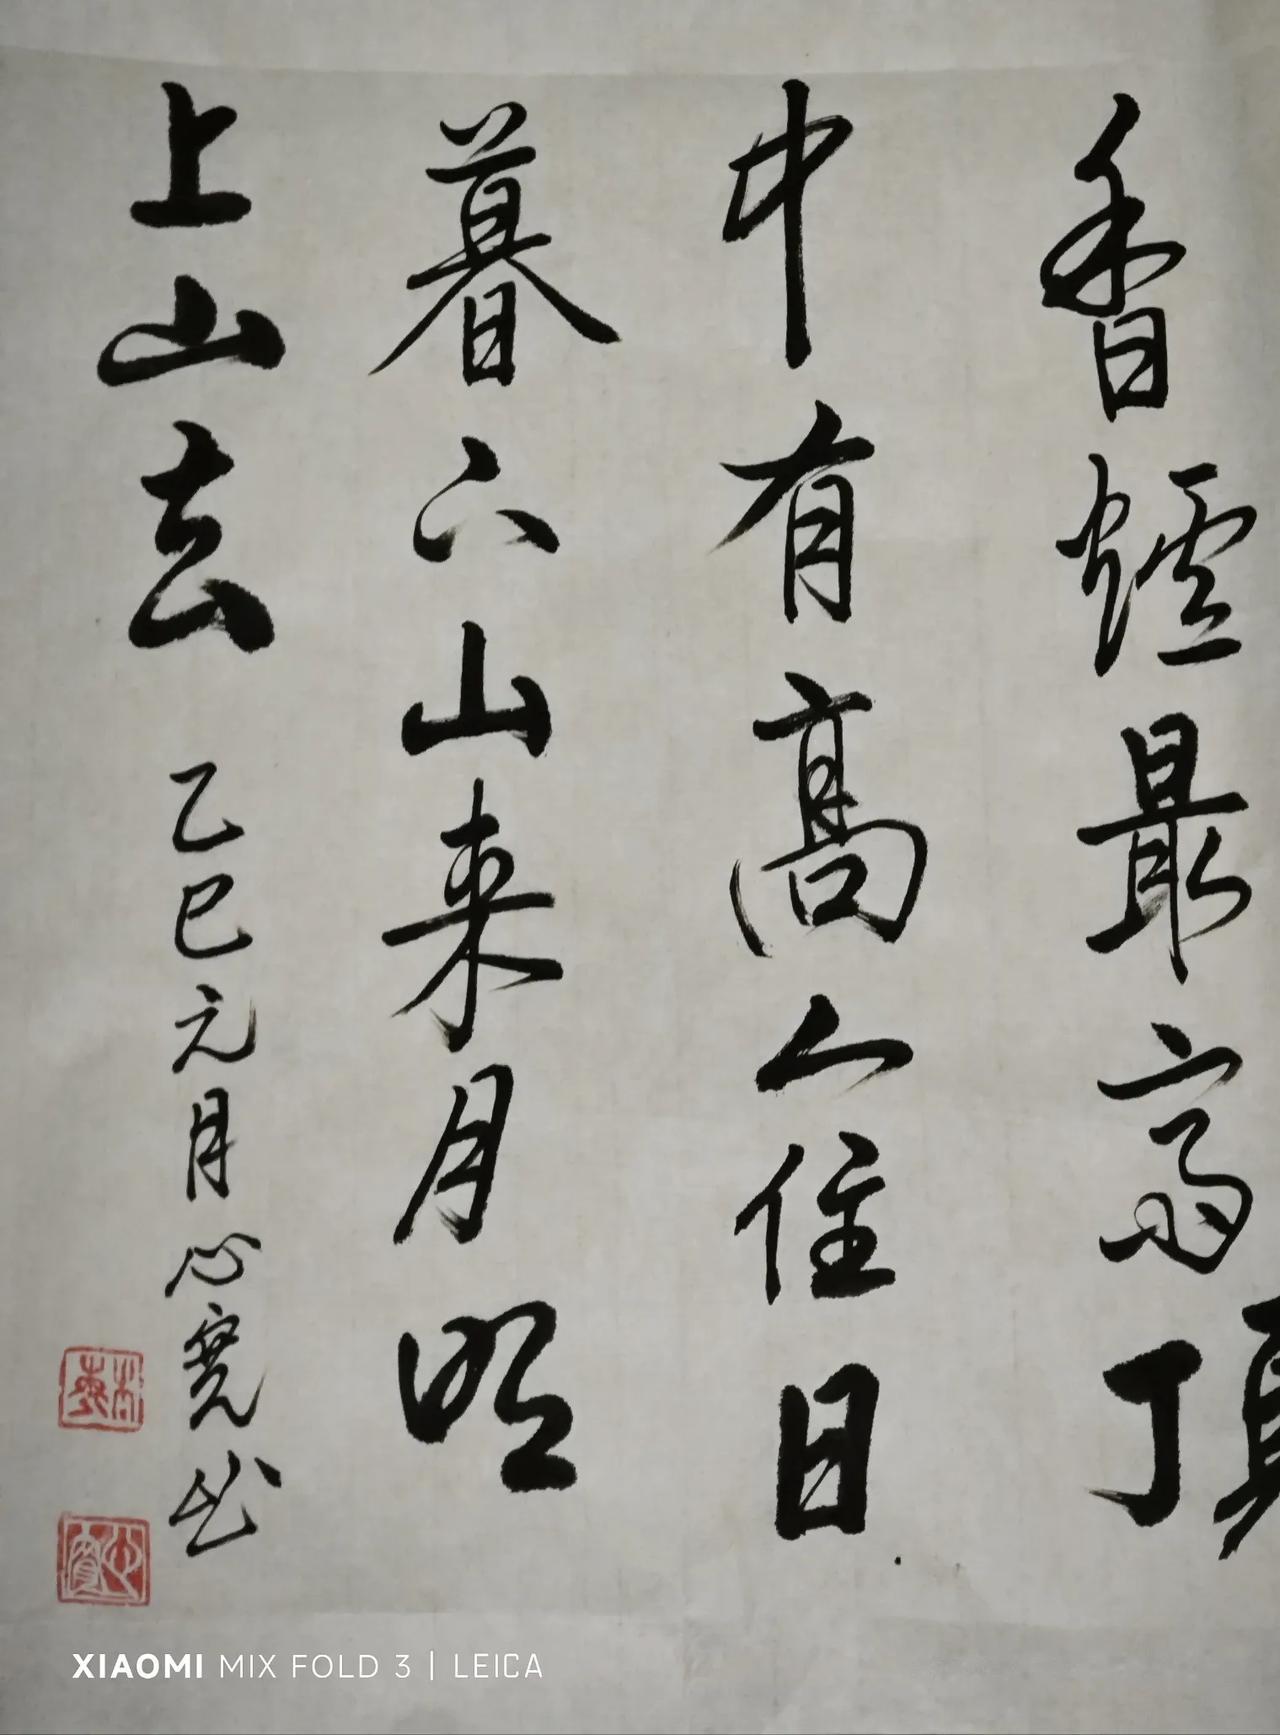 香爐最高頂
中有高人住日
暮下山来月明
上山去
乙巳元月心寬书
XIAOMI MIX FOLD 3 | LEICA